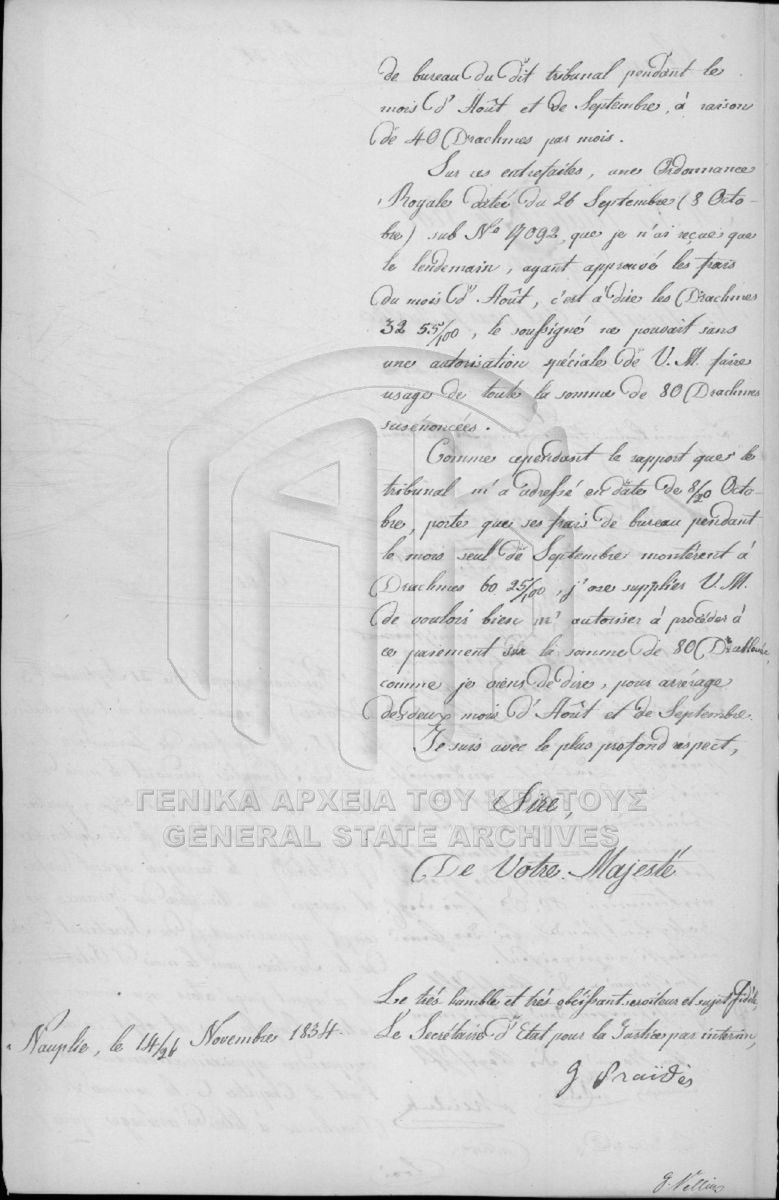 de bureau du dit tribunal pendant le
mois d'Août et de Septembre, à raison
de 40 Drachmes par mois.
Sur ces entrefaites, une Ordonnance
Royale datée du 26 Septembre (8 Octo-
bre) sub N° 17092, que je n'ai reçue que
le lendemain, ayant approuvé les frais
du mois d'Août, c'est à dire les Drachmes
32 55/100, le soussigné ne pouvait sans
une autorisation spéciale de V. M. faire
usage de toute la somme de 80 Drachmes
susénoncées.
Comme cependant le rapport que le
tribunal m'a adressé en date de 8/20 Octo-
bre, porte que ses frais de bureau pendant
le mois seul de Septembre montèrent à
Drachmes 60 25/100, j'ose supplier V. M.
de vouloir bien m'autoriser à procéder à
ce payement sur la somme de 80 Dr. allouée,
comme je viens de dire, pour arrérage
des deux mois d'Août et de Septembre.
Je suis avec le plus profond respect,
ΓΕΝΙΚΑ ΑΡΧΕΙΑ ΤΟΥ ΚΡΑΤΟΥΣ
Sire,
GENERAL STATE ARCHIVES
De Votre Majesté
Le très humble et très obéissant serviteur et sujet fidèle,
Nauplie, le 14/26 Novembre 1834.
Le Secrétaire d'Etat pour la Justice par interim,
G Praïdès